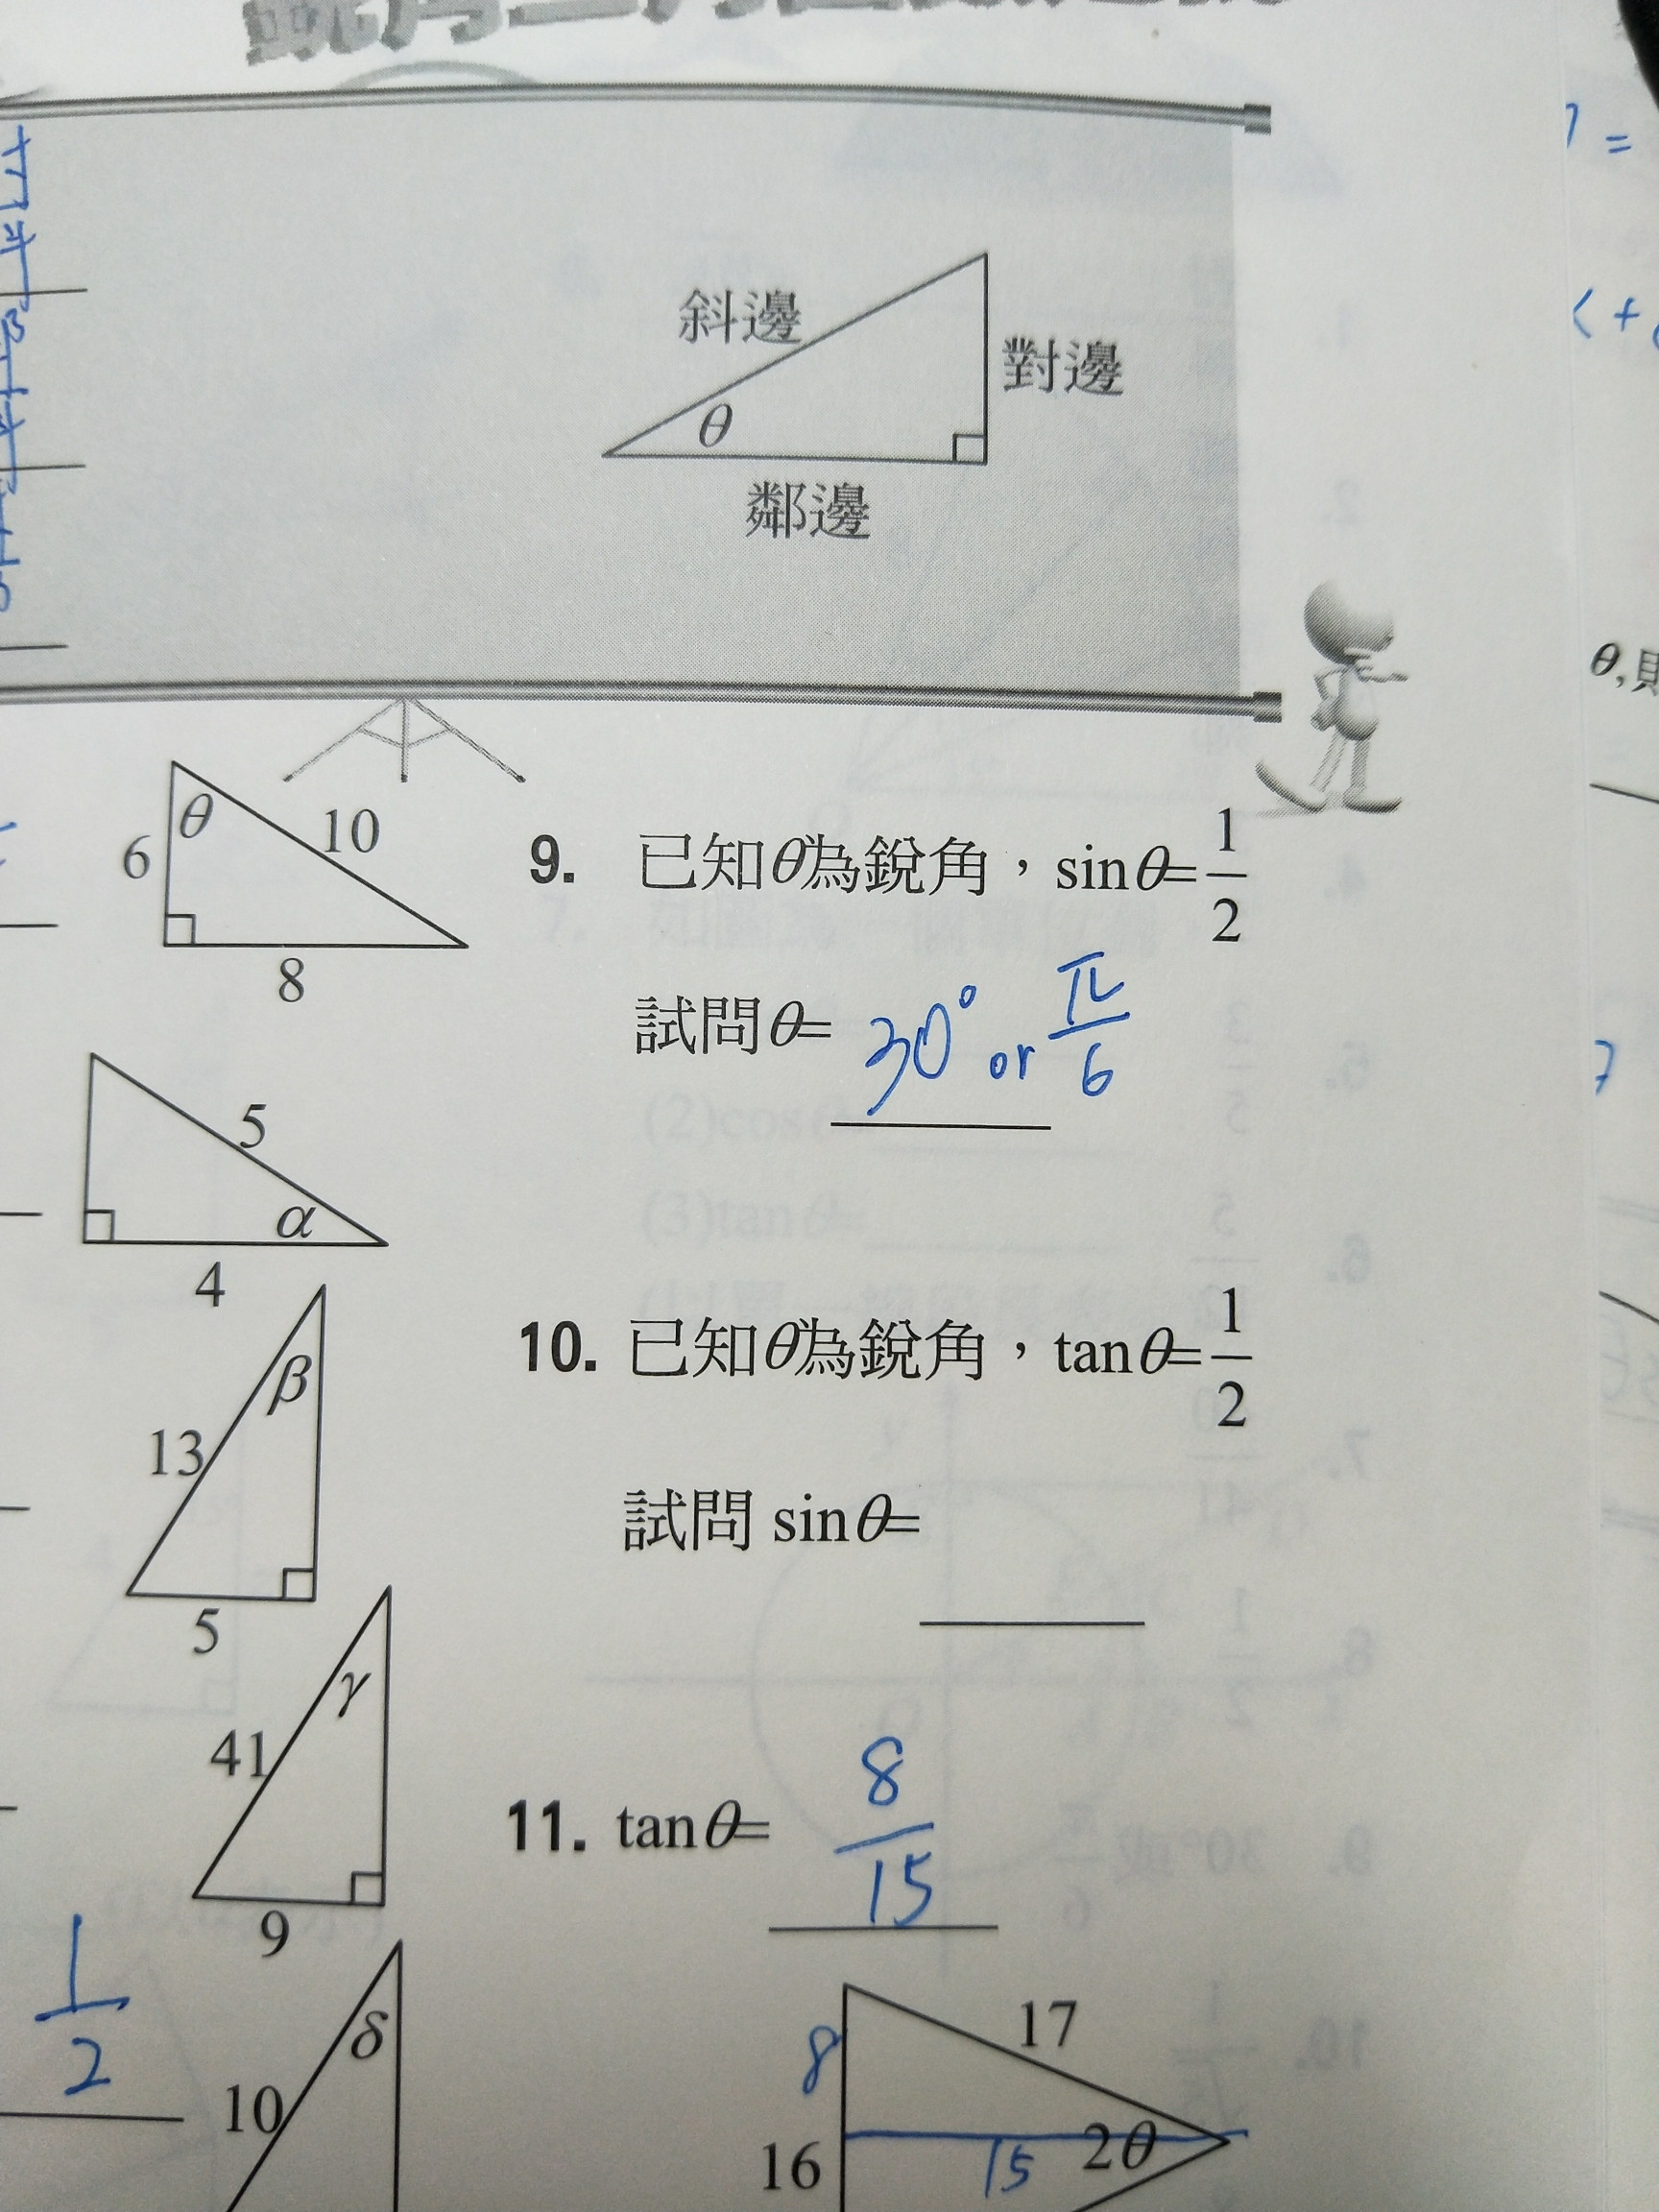 斜邊
對邊
θ
鄰邊
θ
6
10
8
9. 已知θ為銳角，sinθ=1/2
試問θ= 30° or π/6
5
α
4
10. 已知θ為銳角，tanθ=1/2
試問 sinθ=
β
13
5
γ
41
9
11. tanθ= 8/15
1/2
δ
10
17
8
16
15
2θ
θ,則